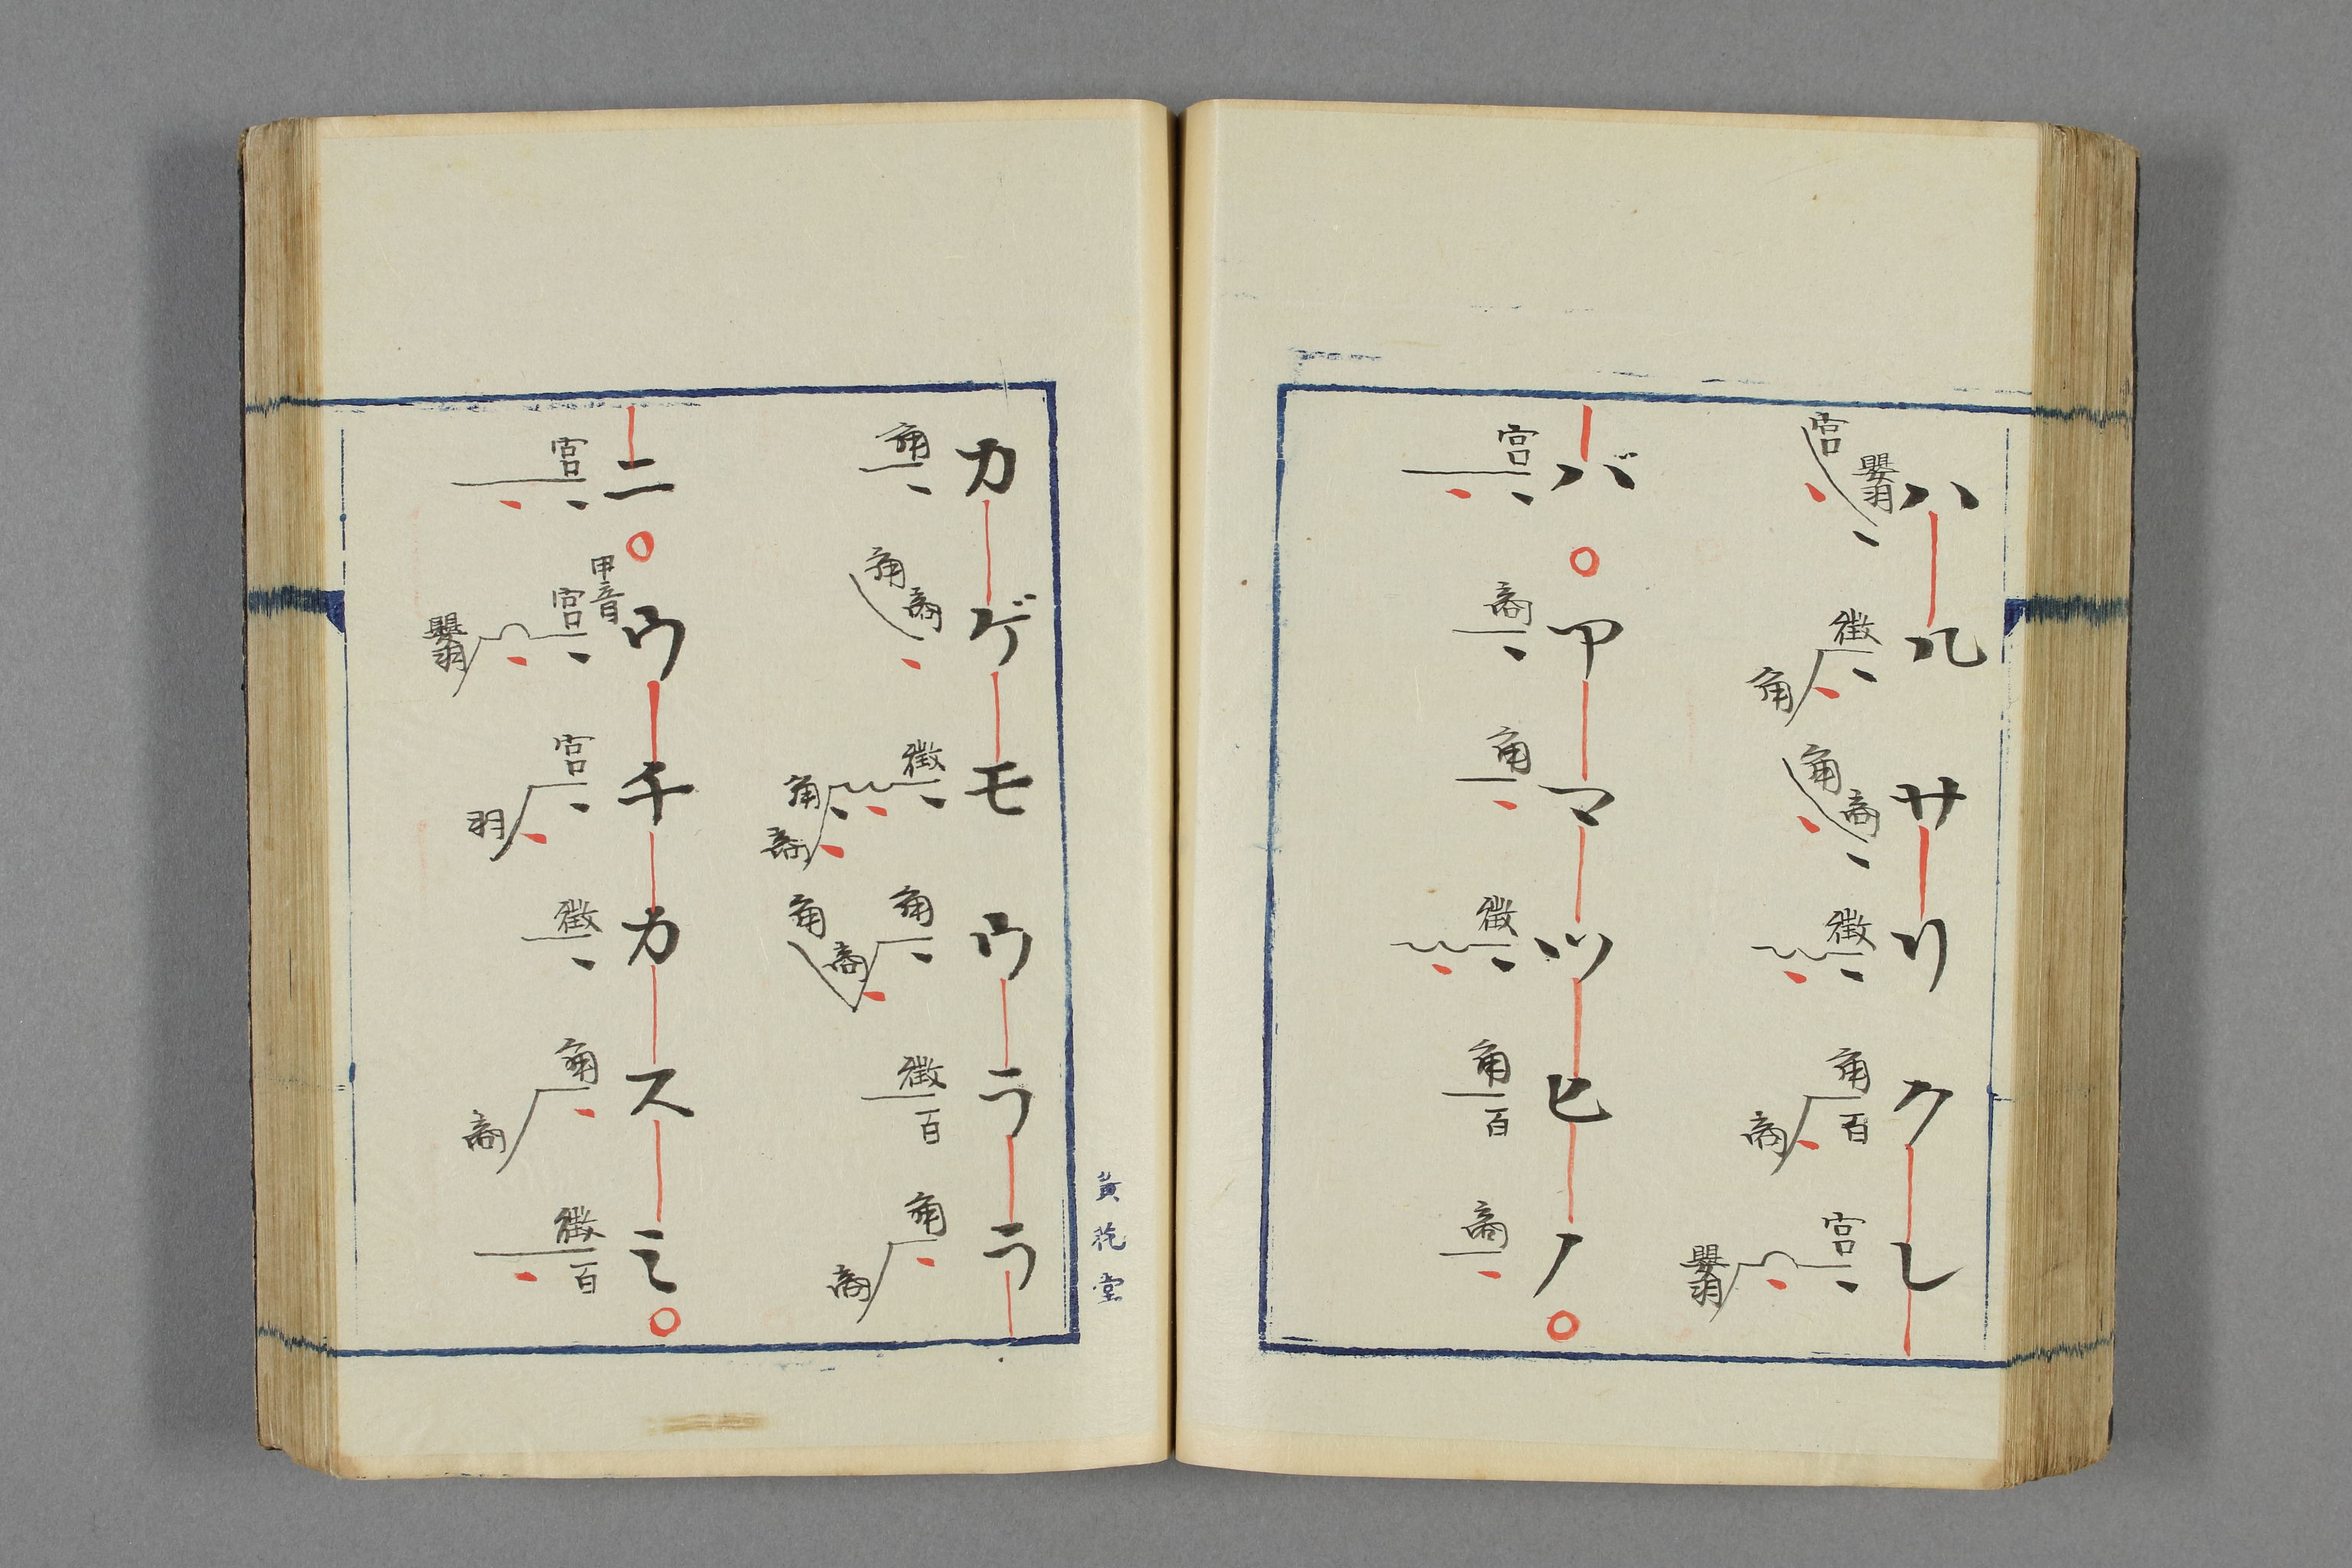 ハルサリクレ
宮 嬰羽 徴 角 角 商 徴 角 百 商 宮 嬰羽
バ○アマツヒノ○
宮 商 角 徴 角 百 商
カゲモウララ
角 角 商 徴 角 商 角 商 角 徴 百 角 商
ニ○ウチカスミ○
宮 甲音 宮 嬰羽 宮 羽 徴 角 商 徴 百